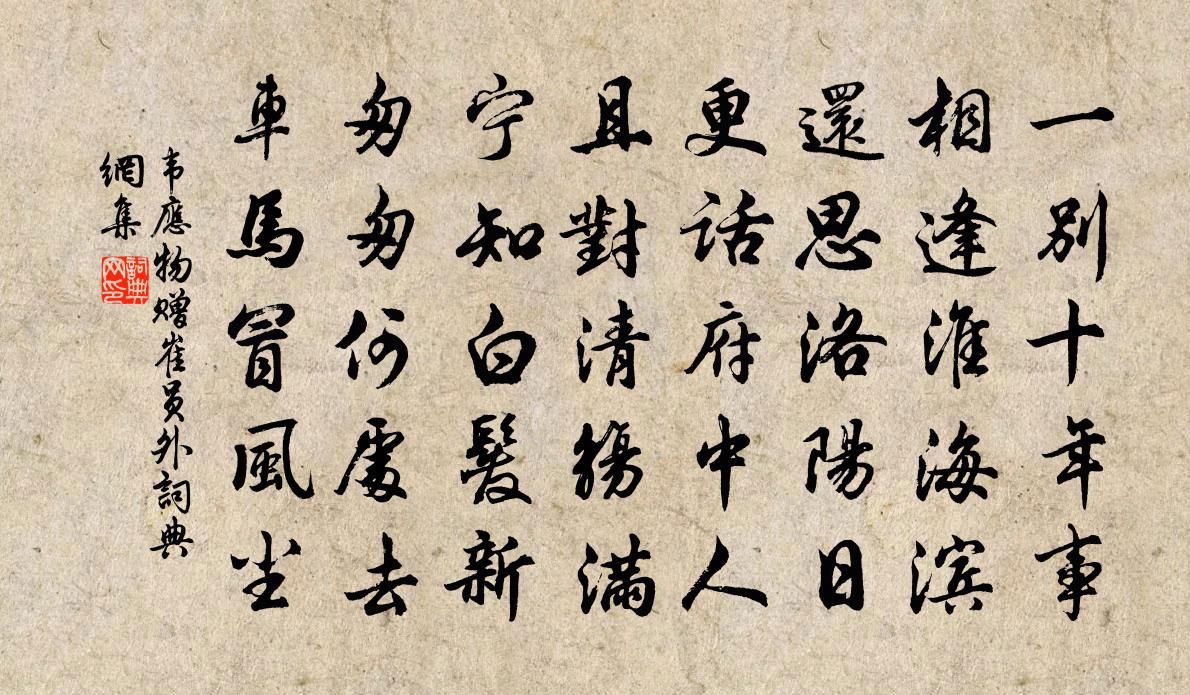 一別十年事
相逢淮海滨
還思洛陽日
更話府中人
且對清觴滿
宁知白髮新
匆匆何處去
車馬冒風尘
韦應物赠崔员外詞典
網集
詞典
网印